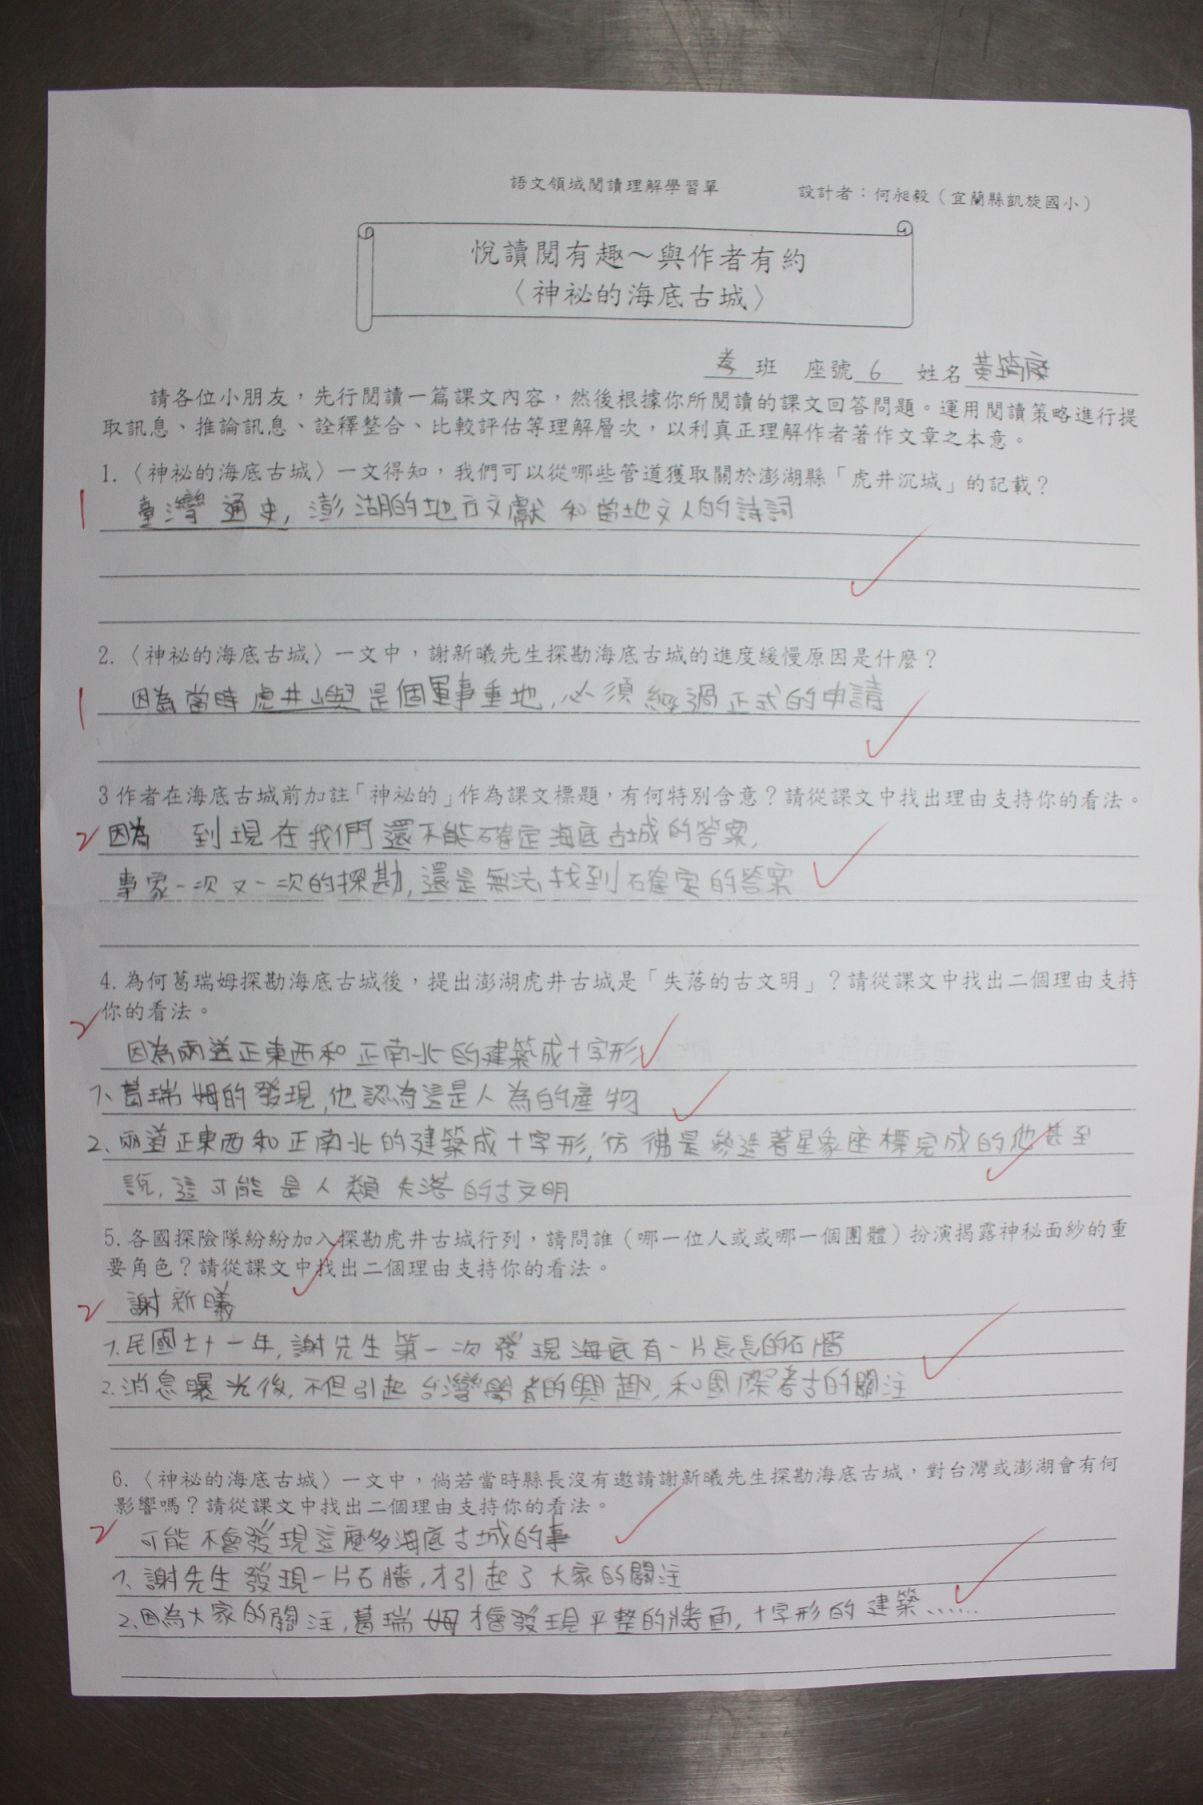 語文領域閱讀理解學習單 設計者：何昶毅（宜蘭縣凱旋國小）
悅讀閱有趣～與作者有約
〈神祕的海底古城〉
孝班 座號 6 姓名 黃
請各位小朋友，先行閱讀一篇課文內容，然後根據你所閱讀的課文回答問題。運用閱讀策略進行提
取訊息、推論訊息、詮釋整合、比較評估等理解層次，以利真正理解作者著作文章之本意。
1.〈神祕的海底古城〉一文得知，我們可以從哪些管道獲取關於澎湖縣「虎井沉城」的記載？
1 臺灣通史, 澎湖的地方文獻和當地文人的詩詞
2.〈神祕的海底古城〉一文中，謝新曦先生探勘海底古城的進度緩慢原因是什麼？
1 因為當時虎井嶼是個軍事重地, 必須經過正式的申請
3 作者在海底古城前加註「神祕的」作為課文標題，有何特別含意？請從課文中找出理由支持你的看法。
2 因為 到現在我們還不能確定海底古城的答案,
專家一次又一次的探勘, 還是無法找到確定的答案
4.為何葛瑞姆探勘海底古城後，提出澎湖虎井古城是「失落的古文明」？請從課文中找出二個理由支持
2 你的看法。
因為兩道正東西和正南北的建築成十字形
1、葛瑞姆的發現, 他認為這是人為的產物
2、兩道正東西和正南北的建築成十字形, 彷彿是參造著星象座標完成的他甚至
說, 這可能是人類失落的古文明
5.各國探險隊紛紛加入探勘虎井古城行列，請問誰（哪一位人或或哪一個團體）扮演揭露神秘面紗的重
要角色？請從課文中找出二個理由支持你的看法。
2 謝新曦
1.民國七十一年, 謝先生第一次發現海底有一片長長的石牆
2.消息曝光後, 不但引起台灣學者的興趣, 和國際考古的關注
6.〈神祕的海底古城〉一文中，倘若當時縣長沒有邀請謝新曦先生探勘海底古城，對台灣或澎湖會有何
影響嗎？請從課文中找出二個理由支持你的看法。
2 可能不會發現這麼多海底古城的事
1、謝先生發現一片石牆, 才引起了大家的關注
2、因為大家的關注, 葛瑞姆才會發現平整的牆面, 十字形的建築......